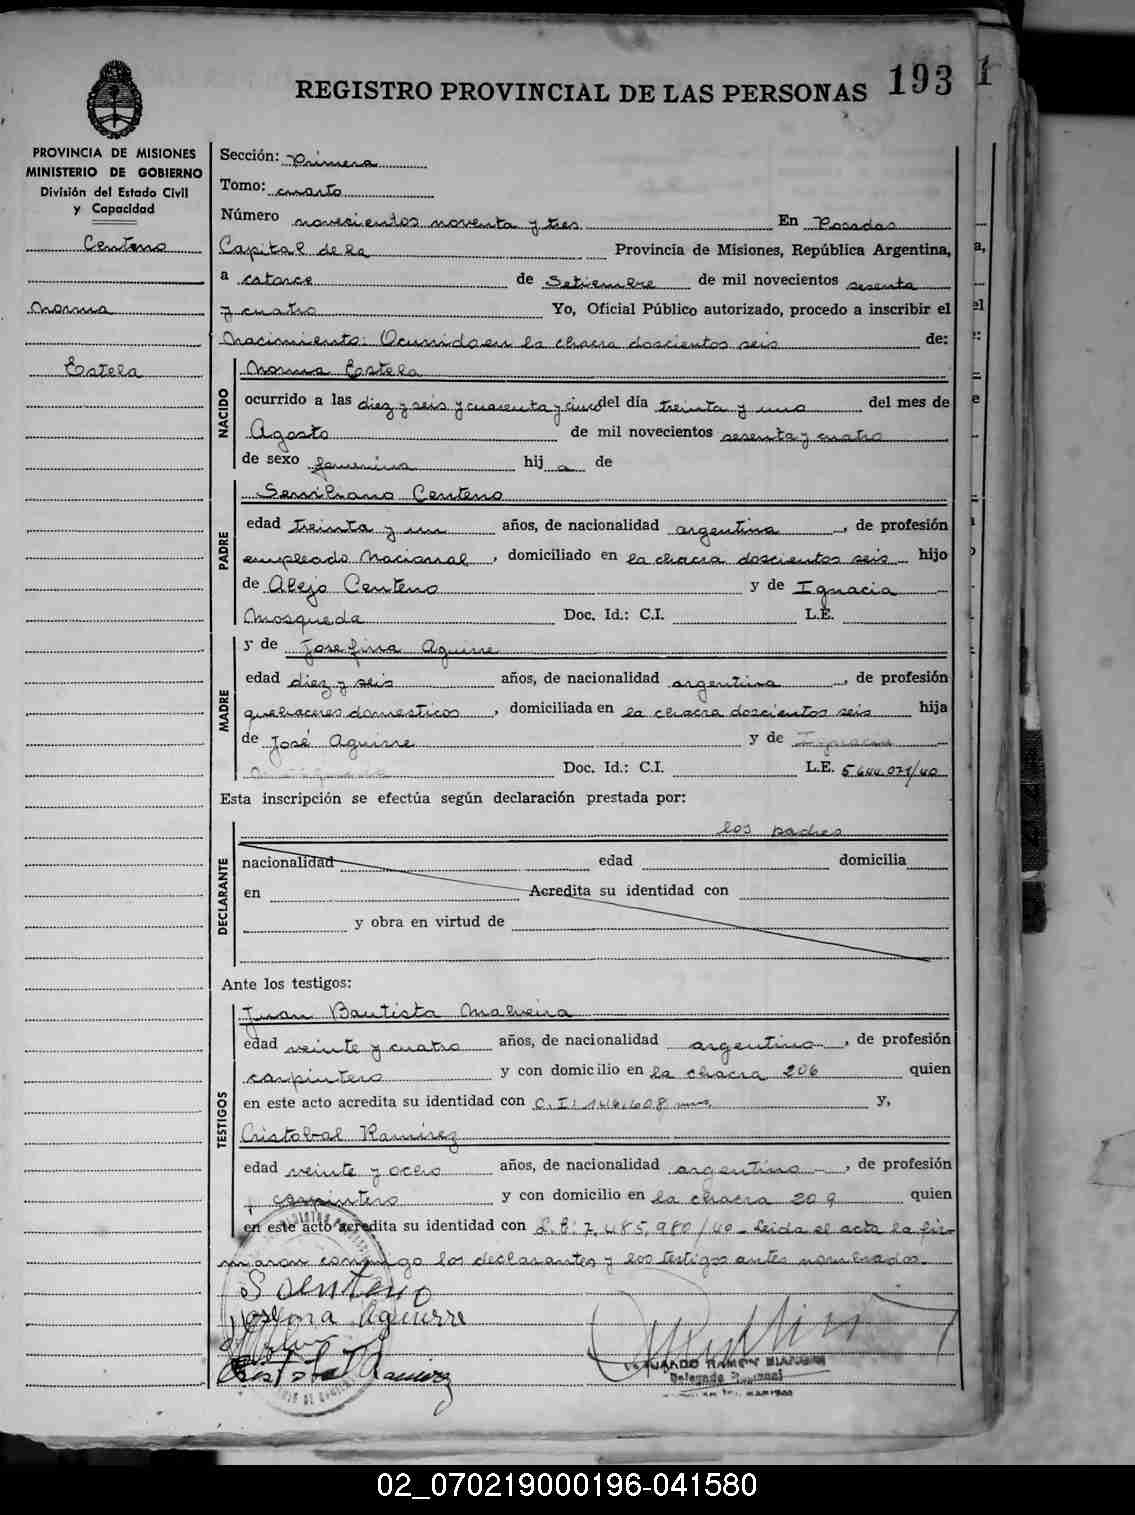 193
REGISTRO PROVINCIAL DE LAS PERSONAS
PROVINCIA DE MISIONES
MINISTERIO DE GOBIERNO
División del Estado Civil
y Capacidad
Centeno
Norma
Estela
Sección: Primera
Tomo: cuarto
Número novecientos noventa y tres En Posadas
Capital de la Provincia de Misiones, República Argentina,
a catorce de Setiembre de mil novecientos sesenta
y cuatro Yo, Oficial Público autorizado, procedo a inscribir el
Nacimiento: Ocurrido en la chacra doscientos seis de:
NACIDO
Norma Estela
ocurrido a las diez y seis y cuarenta y cinco del día treinta y uno del mes de
Agosto de mil novecientos sesenta y cuatro
de sexo femenina hij a de
PADRE
Semiliano Centeno
edad treinta y un años, de nacionalidad argentina, de profesión
empleado Nacional, domiciliado en la chacra doscientos seis hijo
de Alejo Centeno y de Ignacia
Mosqueda Doc. Id.: C.I. L.E.
MADRE
y de Josefina Aguirre
edad diez y seis años, de nacionalidad argentina, de profesión
quehaceres domesticos, domiciliada en la chacra doscientos seis hija
de José Aguirre y de
Doc. Id.: C.I. L.E. 5.644.071/40
Esta inscripción se efectúa según declaración prestada por:
los padres
DECLARANTE
nacionalidad edad domicilia
en Acredita su identidad con
y obra en virtud de
Ante los testigos:
TESTIGOS
Juan Bautista Malveira
edad veinte y cuatro años, de nacionalidad argentino, de profesión
carpintero y con domicilio en la chacra 206 quien
en este acto acredita su identidad con C.I: 146.608 y,
Cristobal Ramirez
edad veinte y ocho años, de nacionalidad argentino, de profesión
carpintero y con domicilio en la chacra 209 quien
en este acto acredita su identidad con L.E: 7.485.980/40 - Leida el acta la fir-
maron conmigo los declarantes y los testigos antes nombrados.
S Centeno
Josefina Aguirre
Cristobal Ramirez
RAMON
Delegado
02_070219000196-041580